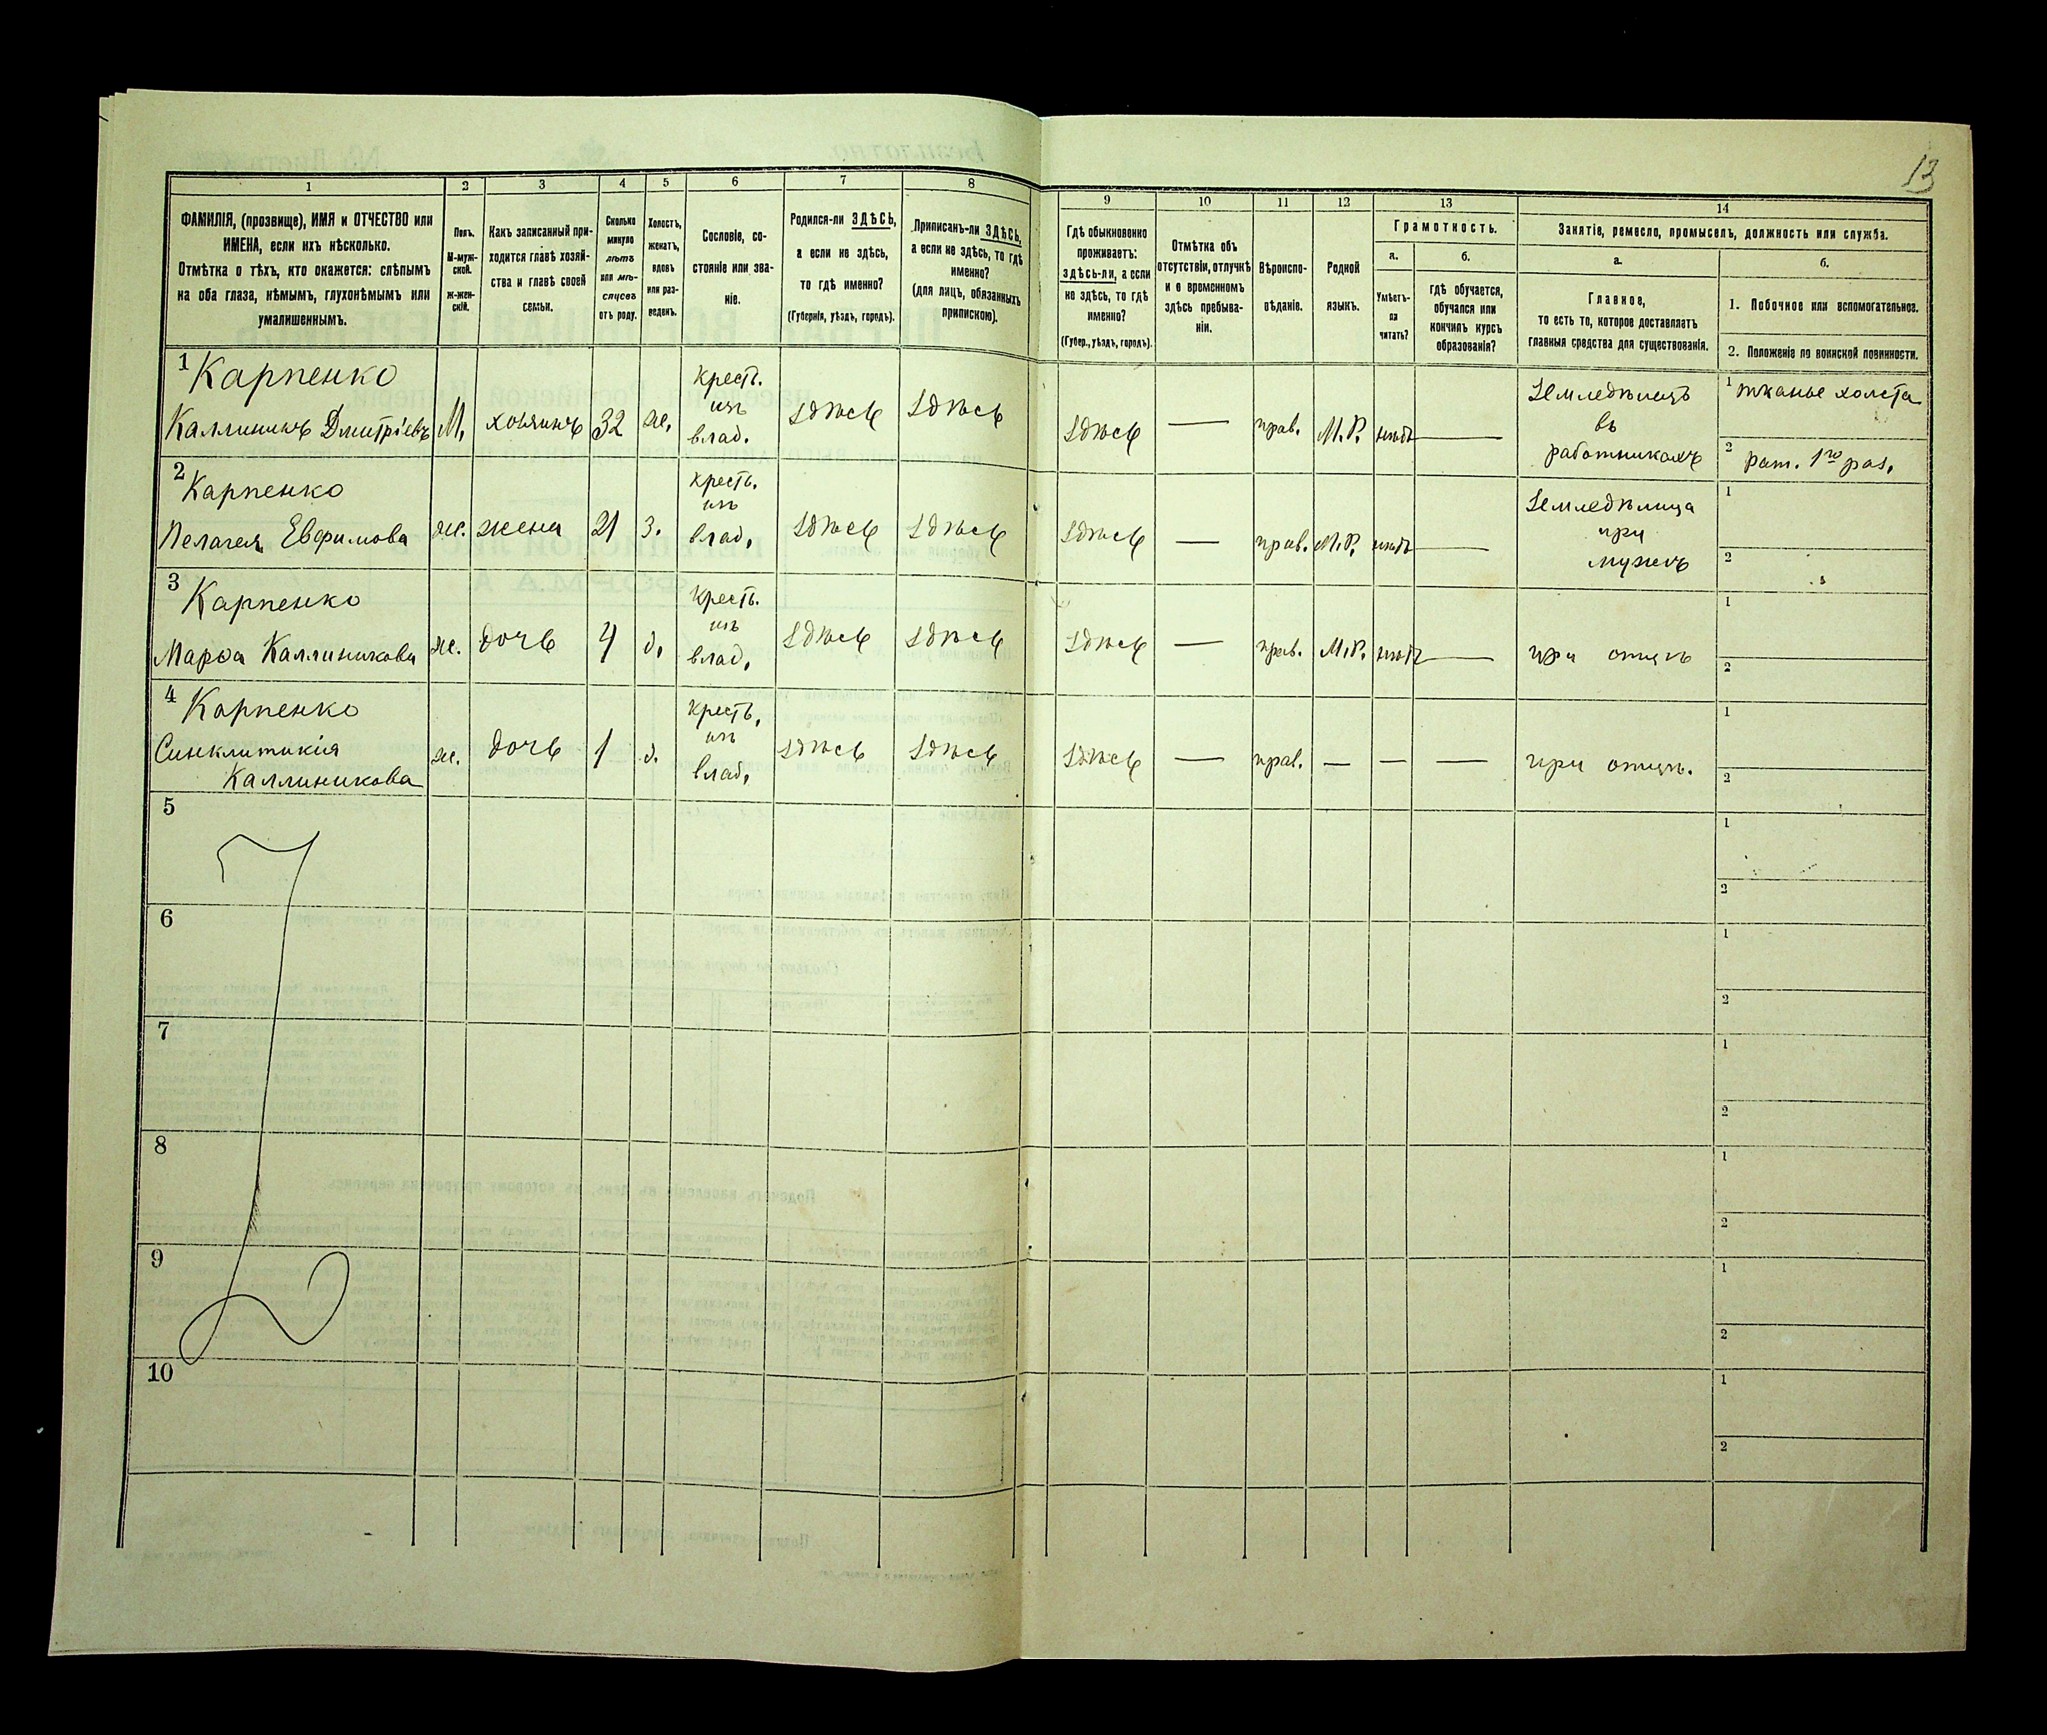 13
1 2 3 4 5 6 7 8 9 10 11 12 13 14
ФАМИЛІЯ, (прозвище), ИМЯ и ОТЧЕСТВО или
ИМЕНА, если ихъ нѣсколько.
Отмѣтка о тѣхъ, кто окажется: слѣпымъ
на оба глаза, нѣмымъ, глухонѣмымъ или
умалишеннымъ.
Полъ.
М-муж-
ской.
Ж-жен-
скій.
Какъ записанный при-
ходится главѣ хозяй-
ства и главѣ своей
семьи.
Сколько
минуло
лѣтъ
или мѣ-
сяцевъ
отъ роду.
Холостъ,
женатъ,
вдовъ
или раз-
веденъ.
Сословіе, со-
стояніе или зва-
ніе.
Родился-ли ЗДѢСЬ,
а если не здѣсь,
то гдѣ именно?
(Губернія, уѣздъ, городъ).
Приписанъ-ли ЗДѢСЬ,
а если не здѣсь, то гдѣ
именно?
(для лицъ, обязанныхъ
припискою).
Гдѣ обыкновенно
проживаетъ:
здѣсь-ли, а если
не здѣсь, то гдѣ
именно?
(Губер., уѣздъ, городъ).
Отмѣтка объ
отсутствіи, отлучкѣ
и о временномъ
здѣсь пребыва-
ніи.
Вѣроиспо-
вѣданіе.
Родной
языкъ.
Грамотность.
а.
Умѣетъ-
ли
читать?
б.
гдѣ обучается,
обучался или
кончилъ курсъ
образованія?
Занятіе, ремесло, промыселъ, должность или служба.
а.
Главное,
то есть то, которое доставляетъ
главныя средства для существованія.
б.
1. Побочное или вспомогательное.
2. Положеніе по воинской повинности.
1 Карпенко
Каллиникъ Дмитріевъ М. хозяинъ 32 ж. крест. изъ влад. здѣсь здѣсь здѣсь — прав. М.Р. нѣтъ — Земледѣлецъ въ работникахъ
1 тканье холста
2 рат. 1го раз.
2 Карпенко
Пелагея Евфимова ж. жена 21 з. крест. изъ влад. здѣсь здѣсь здѣсь — прав. М.Р. нѣтъ — Земледѣлица при мужѣ
1
2
3 Карпенко
Марѳа Каллиникова ж. дочь 4 д. крест. изъ влад. здѣсь здѣсь здѣсь — прав. М.Р. нѣтъ — при отцѣ
1
2
4 Карпенко
Синклитикія
Каллиникова ж. дочь 1 д. крест. изъ влад. здѣсь здѣсь здѣсь — прав. — — — при отцѣ.
1
2
5
1
2
6
1
2
7
1
2
8
1
2
9
1
2
10
1
2